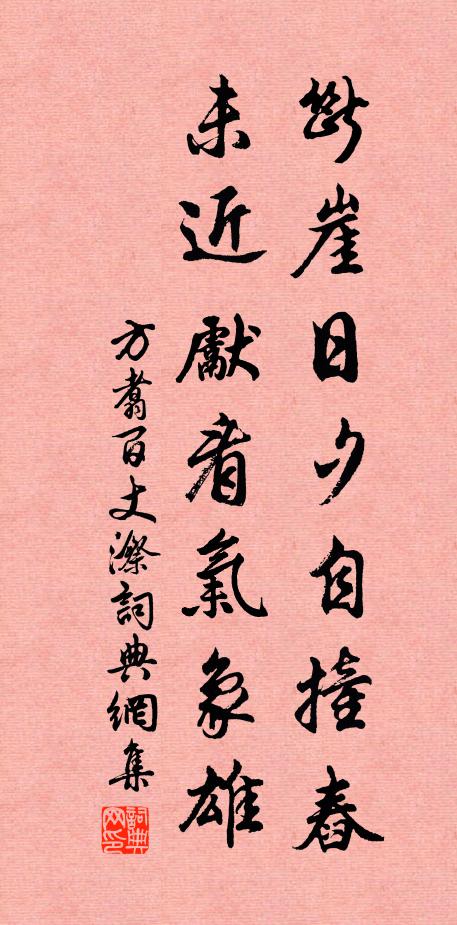 斷崖日夕自撞舂
未近獻看氣象雄
方翥百丈漈詞典網集
詞典网印